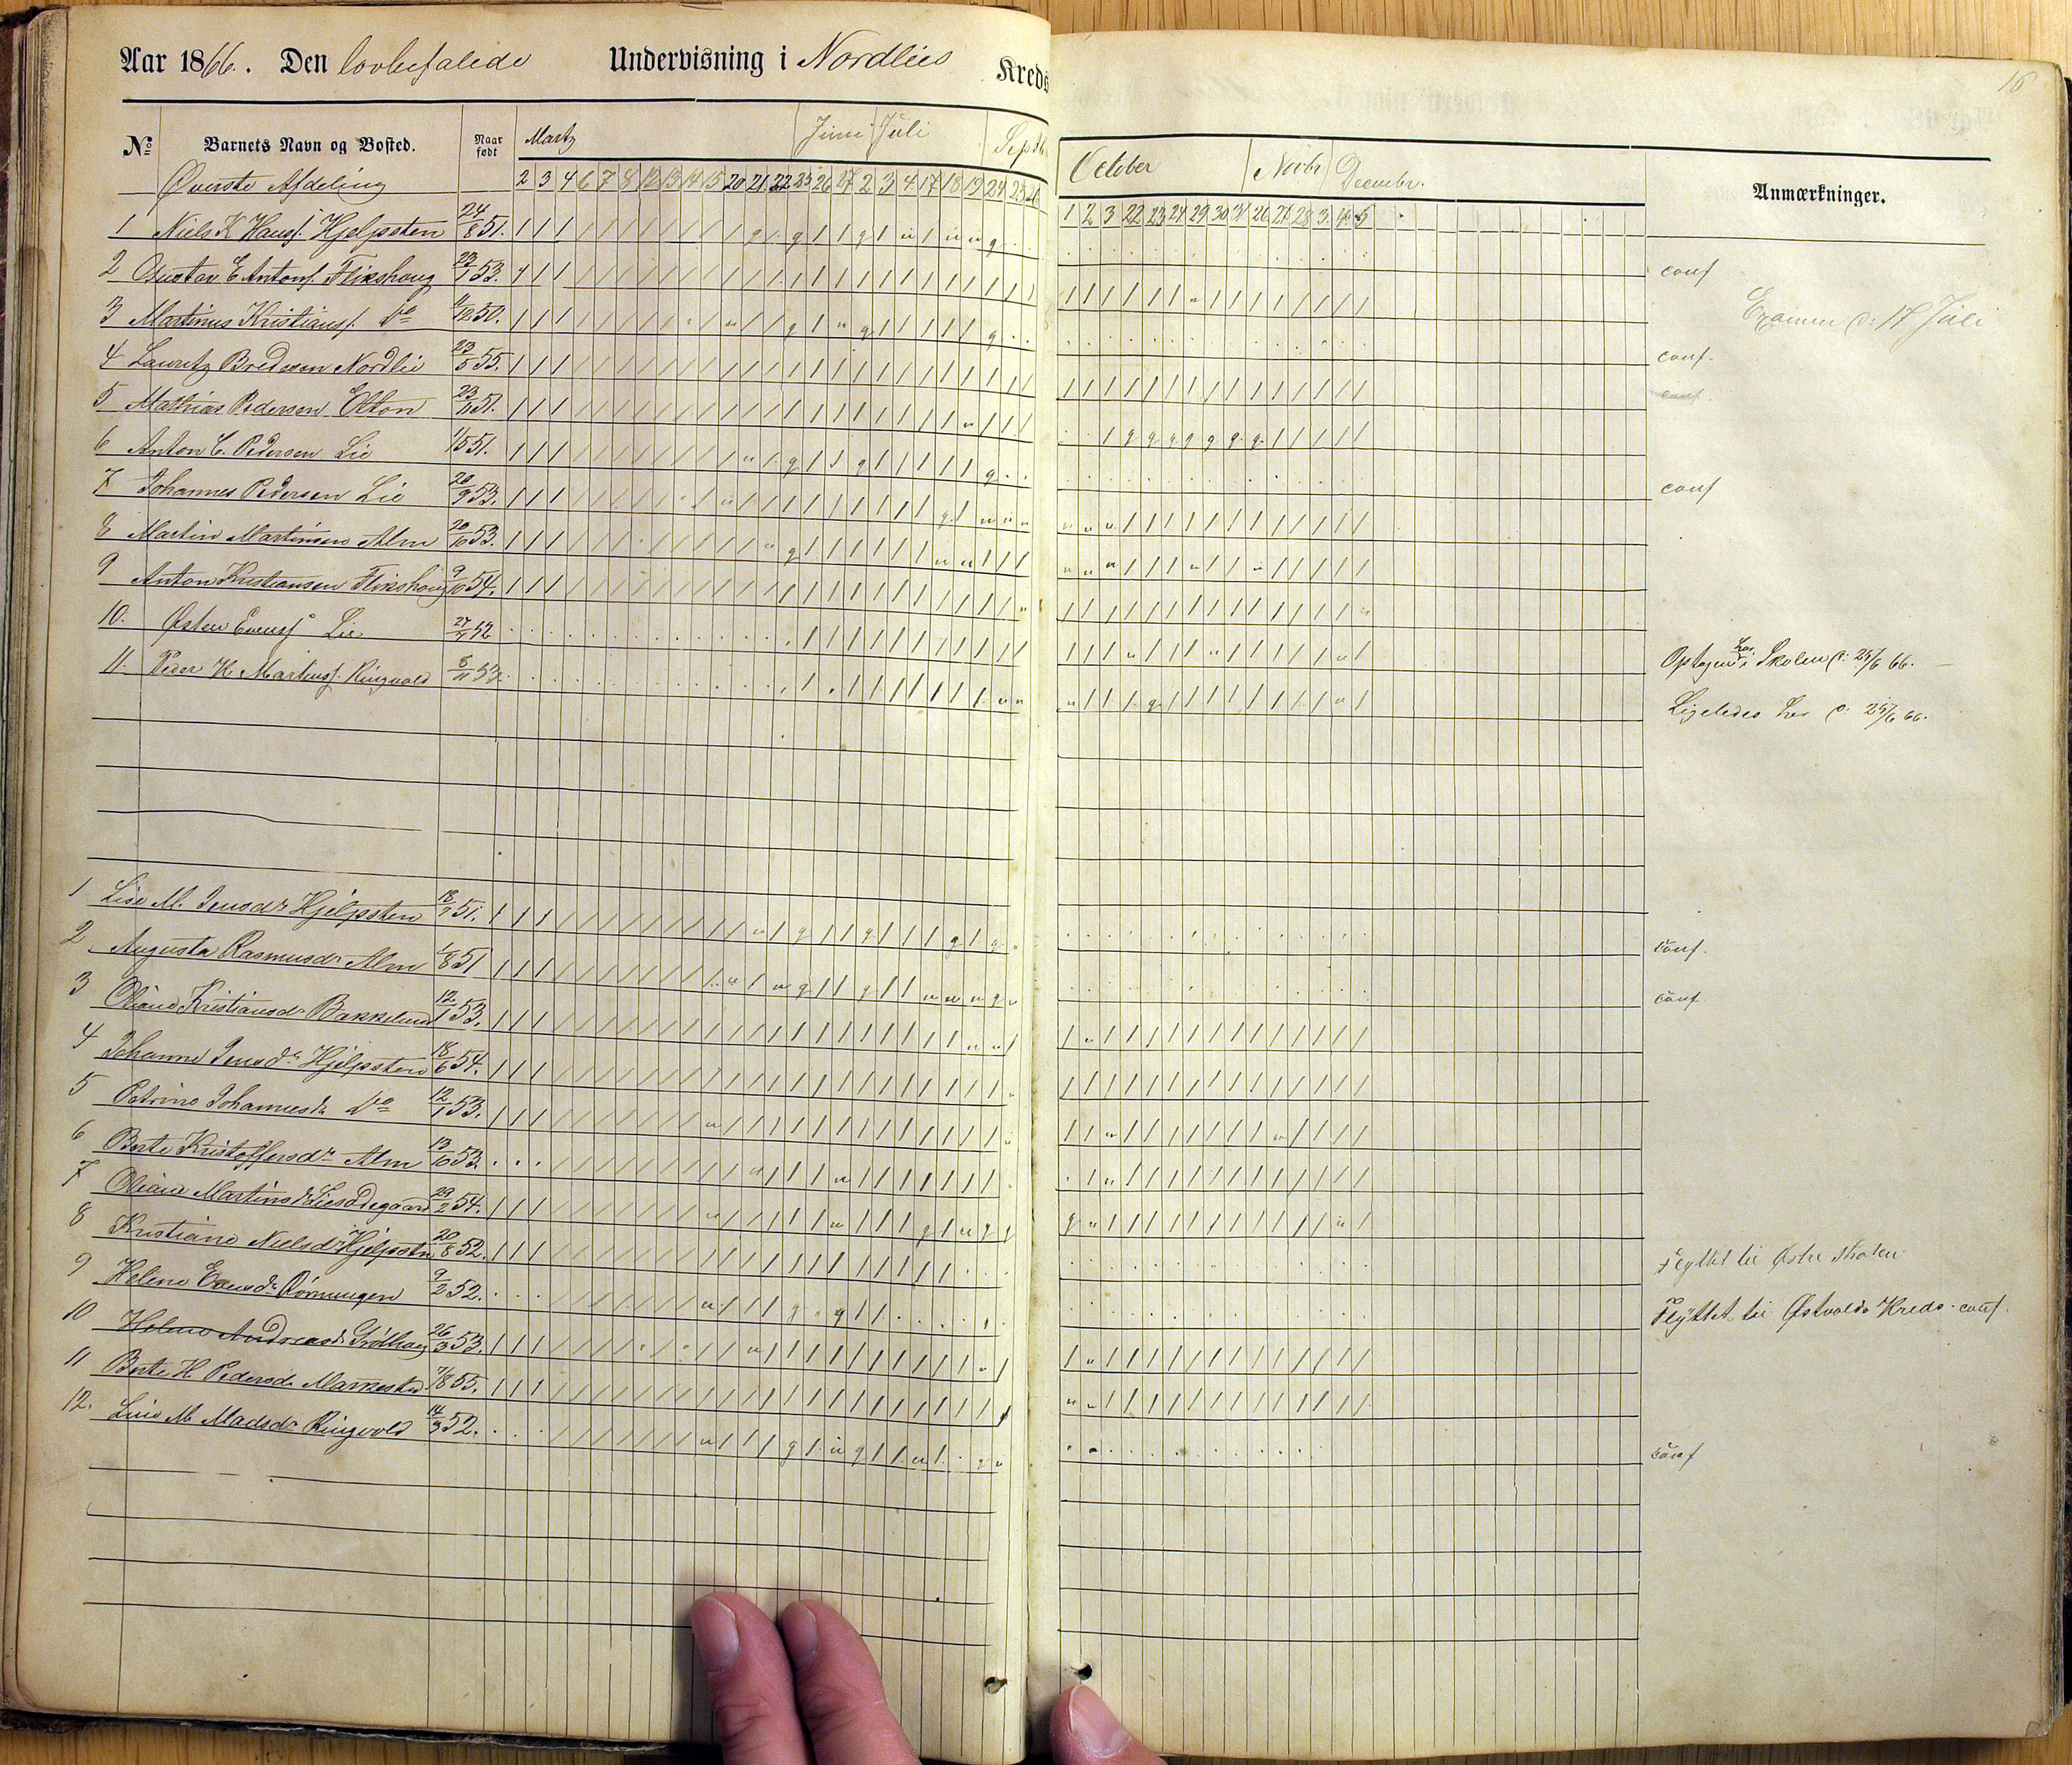 Aar 1866. Den lovbefalede Undervisning i Nordlies Kreds
16
No Barnets Navn og Bosted. Naar født Marts Juni Juli Septb October Novbr Decembr. Anmærkninger.
Øverste Afdeling 2 3 4 6 7 8 12 13 14 15 20 21 22 25 26 27 2 3 4 17 18 19 24 25 26 1 2 3 22 23 24 29 30 31 26 27 28 3. 4. 5
1 Niels K Hansf. Hjelpsten 24/8 51. conf
2 Gustav E Antonf. Flikshaug 23/1 53.
Examen d: 17 Juli
3 Martinus Kristiansf. do /12 50. conf.
4 Lauritz Bredesen Nordlie 23/5 55. conf.
5 Mathias Pedersen Elton 23/11 51.
6 Anton C. Pedersen Lie 1/5 51. conf
7 Johannes Pedersen Lie 20/9 53.
8 Martin Martinsen Alm 20/10 53.
9 Anton Kristiansen Flikshaug 9/10 54.
10. Østen Evensf. Lie 27/11 52 Optagen her i Skolen d: 25/6 66.
11. Peder K. Martinsf. Ringvold 5/11 53. Ligeledes her d: 25/6 66.
1 Lise M. Jensdr Hjelpsten 18/7 51. conf.
2 Augusta Rasmusdr Alm 1/8 51 conf
3 Oliane Kristiansdr Bakkelund 12/1 53.
4 Johanne Jensdr Hjelpsten 18/6 54.
5 Petrine Johannesdr do 12/1 53.
6 Berte Kristoffersdr Alm 13/10 53.
7 Oliane Martinsdr Liesødegaard 29/2 54.
8 Kristiane Nielsdr Hjelpstn 20/8 52. Flyttet til Østre Thoten
9 Helene Evensdr Rørmungen 9/2 52. Flyttet til Østvolds Kreds. conf.
10 Helene Andreasdr 26/3 53.
11 Berte H. Pedersdr Markestad 7/8 55.
12. Lise M. Madsdr Ringvold 14/3 52. conf